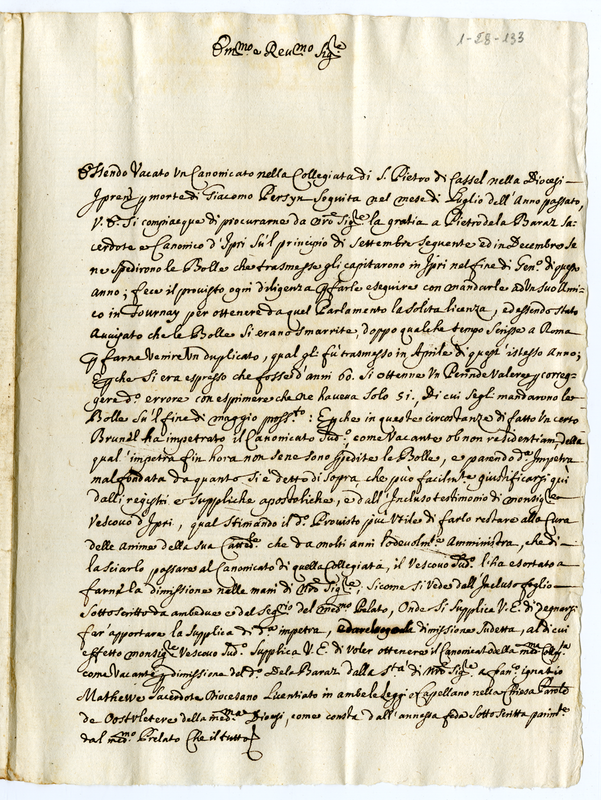 1-28-133
Em.mo e Reu.mo Sig.re
Essendo Vacato Vn Canonicato nella Collegiata di S. Pietro di Cassel nella Diocesi
Jpren. p morte di Giacomo Persyn seguita nel mese di Luglio dell'Anno passato
V. E. Si compiacque di procurarne da nro Sig.re la gratia a Pietro de la Baraz Sa-
cerdote e Canonico d'Jpri sù'l principio di Settembre Seguente ed in Decembre Se
ne spedirono le Bolle che trasmesse gli capitarono in Jpri nel fine di Gen.o di quest'
anno; fece il prouisto ogni diligenza p farle eseguire con mandarle ad Vn suo Ami-
co in Tournay per ottenere da quel Parlamento la solita licenza, ed essendo stato
Auuisato che le Bolle si erano smarrite, doppo qualche tempo Scrisse a Roma
p farne Venire Vn duplicato, qual gli fù trasmesso in Aprile di quest'istesso Anno;
E p che Si era espresso che fosse d'anni 60. Si ottenne Vn Perinde Valere p correg-
gere d.o errore con esprimere che ne haueua Solo 51. Di cui Segli mandarono le
Bolle sù'l fine di maggio pross.to: E p che in queste circostanze di fatto Vn certo
Brunel ha impetrato il Canonicato Sud.o come Vacante ob non residentiam, della
qual'impetra fin hora non se ne sono spedite le Bolle, e parendo d.a Impetra
mal fondata da quanto si è detto di sopra, che può facilm.te giustificarsi quì
dalli registri e Suppliche apostoliche, e dall'Incluso testimonio di monsig.re
Vescouo d'Jpri, qual Stimando il d.o Prouisto più Vtile di farlo restare alla Cura
delle Anime della sua che da molti anni lodeuolm.te Amministra, che di
lasciarlo passare al Canonicato di quella Collegiata, il Vescouo Sud.o l'ha esortato a
farne la dimissione nelle mani di Nro Sig.re, Sicome si Vede dall'Incluso foglio
Sottoscritto da ambedue e dal Seg.rio del med.mo Prelato, Onde Si Supplica V. E. di degnarsi
far'apportare la Supplica di d.a impetra, dimissione Sudetta, al di cui
effetto monsig.re Vescouo Sud.o Supplica V. E. di Voler ottenere il Canonicato della Colleg.ta
come Vacante p dimissione del d.o De la Baraz dalla S.ta di Nro Sig.re a ignatio
Mathewe Sacerdote Diocesano Licentiato in ambe le leggi e Capellano nella Chiesa Parole
de Oostvletere della med.ma Diocesi, come consta dall'annessa fede Sottoscritta parim.te
dal med.mo Prelato Che il tutto